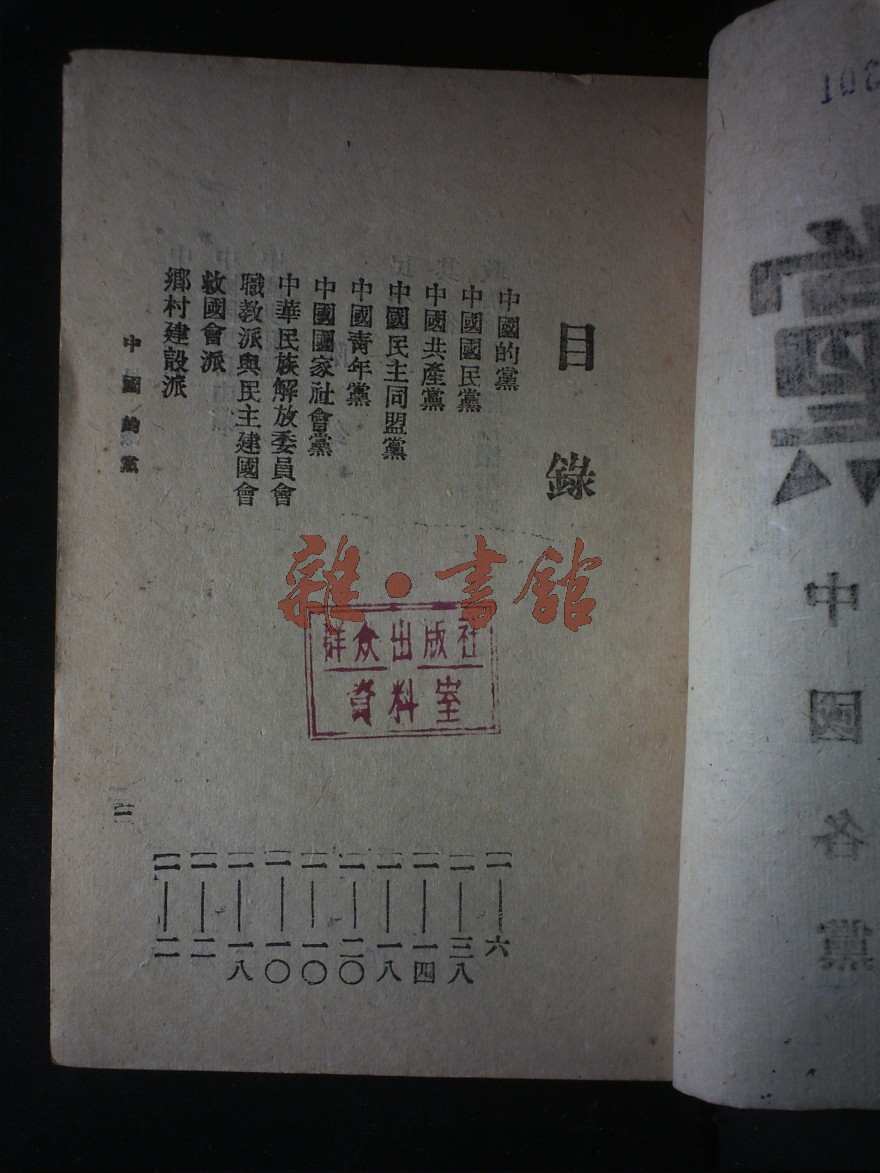 中國各黨
目錄
中國的黨 一——六
中國國民黨 一——三八
中國共產黨 一——一四
中國民主同盟黨 一——一八
中國青年黨 一——二〇
中國國家社會黨 一——一〇
中華民族解放委員會 一——一〇
職教派與民主建國會 一——一八
救國會派 一——二
鄉村建設派 一——二
中國的黨
雜·書館
群众出版社
資料室